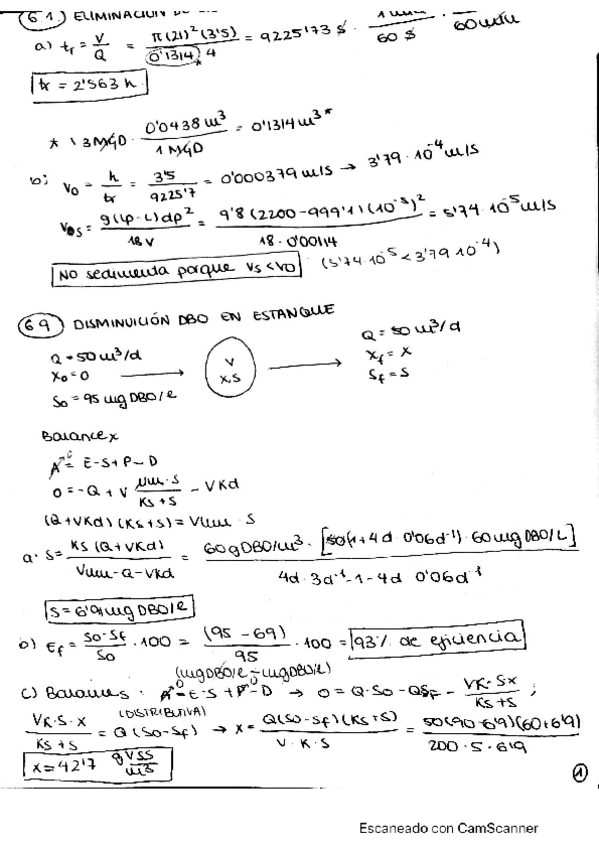 6.1) ELIMINACIÓN DE
a) tr = V/Q = π(21)²(3'5)/(0'1314)* 4 = 9225'73 s · /60 s ·
tr = 2'563 h
* 3 MGD · 0'0438 m³/1 MGD = 0'1314 m³*
b) vo = h/tr = 3'5/9225'7 = 0'000379 m/s → 3'79 · 10⁻⁴ m/s
vs = g(ρp - L)dp²/18 V = 9'8(2200-999'1)(10⁻⁵)²/18 · 0'00114 = 5'74 · 10⁻⁵ m/s
No sedimenta porque vs < vo (5'74 · 10⁻⁵ < 3'79 10⁻⁴)
6.9) DISMINUICIÓN DBO EN ESTANQUE
Q = 50 m³/d
X0 = 0
S0 = 95 mg DBO/l
V
X,S
Q = 50 m³/d
Xf = X
Sf = S
Balance x
A⁰ = E-S+P-D
0 = -Q + V μm·S/Ks+S - VKd
(Q+VKd)(Ks+S) = Vμm · S
a. S = Ks(Q+VKd)/Vμm-Q-VKd = 60gDBO/m³ · [50(1+4d 0'06d⁻¹) · 60 mg DBO/L]/4d · 3d⁻¹-1-4d 0'06d⁻¹
S = 6'9 mg DBO/l
b) Ef = So-Sf/So · 100 = (95-69)/95 · 100 = 93% de eficiencia
(mgDBO/l - mgDBO/l)
c) Balance s: A⁰ = E-S+P⁰-D → 0 = Q·So-QSf - VK·Sx/Ks+S ;
VK·S·X/Ks+S = Q(So-Sf) (DISTRIBUTIVA) → X = Q(So-Sf)(Ks+S)/V·K·S = 50(90-6'9)(60+6'9)/200·5·6'9
X = 42'7 gVSS/m³
1
Escaneado con CamScanner